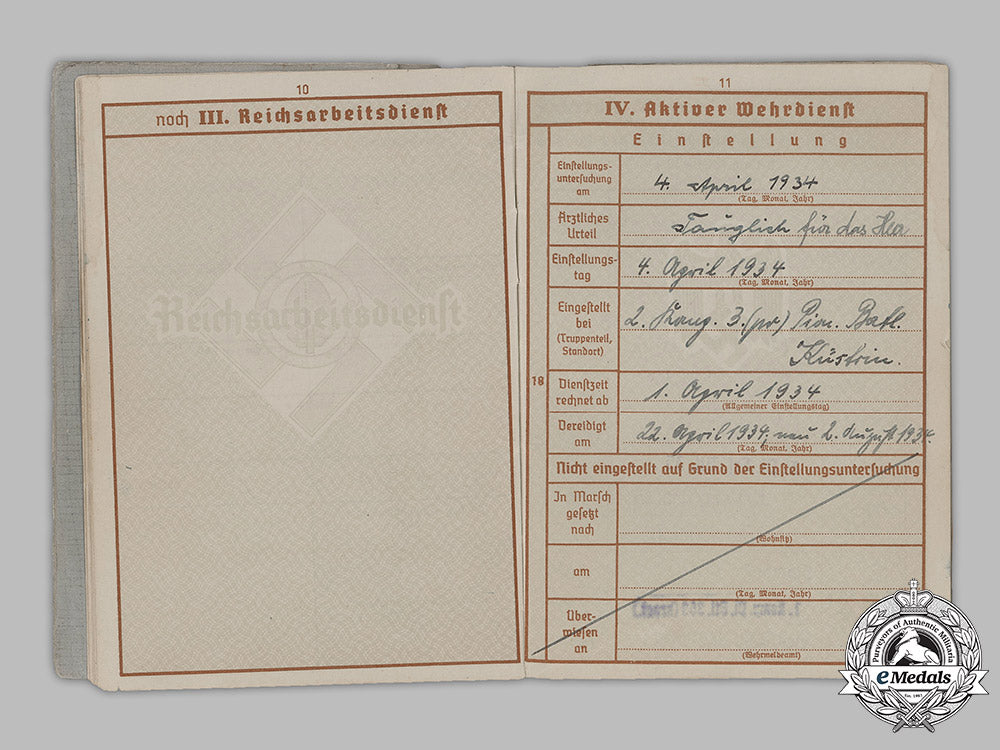 10
noch III. Reichsarbeitsdienst
Reichsarbeitsdienst
11
IV. Aktiver Wehrdienst
Einstellung
18
Einstellungs-
untersuchung
am
4. April 1934
(Tag, Monat, Jahr)
Ärztliches
Urteil
Tauglich für das Heer
Einstellungs-
tag
4. April 1934
(Tag, Monat, Jahr)
Eingestellt
bei
(Truppenteil,
Standort)
2. Komp. 3. (pr) Pion. Batl.
Küstrin.
Dienstzeit
rechnet ab
1. April 1934
(Allgemeiner Einstellungstag)
Vereidigt
am
22. April 1934, neu 2. August 1934.
(Tag, Monat, Jahr)
Nicht eingestellt auf Grund der Einstellungsuntersuchung
In Marsch
gesetzt
nach
(Wohnsitz)
am
(Tag, Monat, Jahr)
Über-
wiesen
an
(Wehrmeldeamt)
Purveyors of Authentic Militaria
eMedals